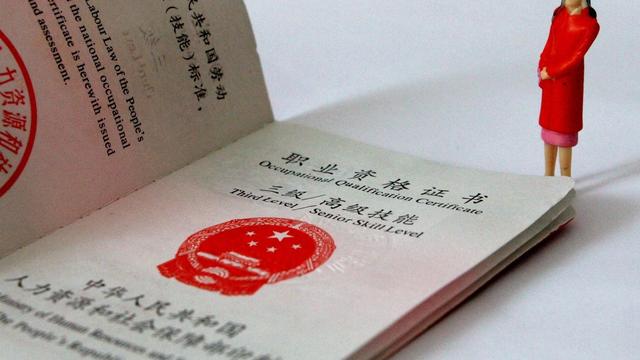 民共和国劳动
(技能)标准，
Labour Law of the People's
the national occupational
certificate is herewith issued
and assessment.
力资源和社
职业资格证书
Occupational Qualification Certificate
三级/高级技能
Third Level/Senior Skill Level
中华人民共和国
人力资源和社会保障部印制
Ministry of Human Resources and
The People's Republic